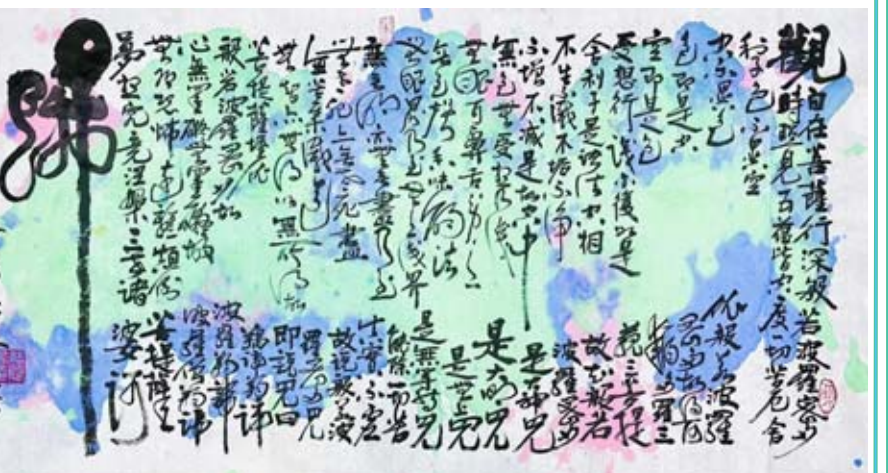 觀自在菩薩行深般若波羅蜜多
時照見五蘊皆空度一切苦厄舍
利子色不異空
空不異色
色即是空
空即是色
受想行識亦復如是
舍利子是諸法空相
不生不滅不垢不淨
不增不減是故空中
無色無受想行識
無眼耳鼻舌身意
無色聲香味觸法
無眼界乃至無意識界
無無明亦無無明盡乃至
無老死亦無老死盡
無苦集滅道
無智亦無得以無所得故
菩提薩埵依
般若波羅蜜多故
心無罣礙無罣礙故
無有恐怖遠離顛倒
夢想究竟涅槃三世諸
佛
依般若波羅
蜜多故得阿
耨多羅三
藐三菩提
故知般若
波羅蜜多
是大神咒
是大明咒
是無上咒
是無等等咒
能除一切苦
真實不虛
故說般若波
羅蜜多咒
即說咒曰
揭諦揭諦
波羅揭諦
波羅僧揭諦
菩提薩
婆訶